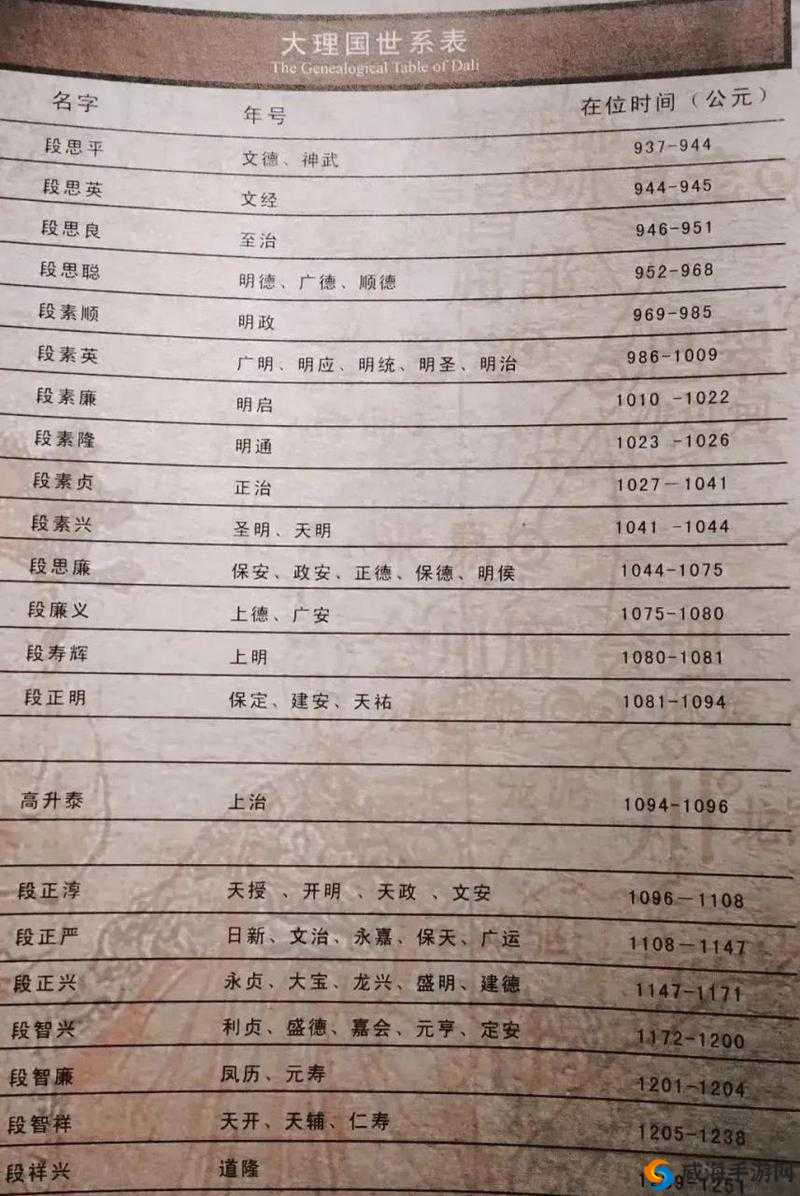 大理国世系表
The Genealogical Table of Dali
名字 年号 在位时间（公元）
段思平 文德、神武 937-944
段思英 文经 944-945
段思良 至治 946-951
段思聪 明德、广德、顺德 952-968
段素顺 明政 969-985
段素英 广明、明应、明统、明圣、明治 986-1009
段素廉 明启 1010 -1022
段素隆 明通 1023 -1026
段素贞 正治 1027－1041
段素兴 圣明、天明 1041 -1044
段思廉 保安、政安、正德、保德、明侯 1044-1075
段廉义 上德、广安 1075-1080
段寿辉 上明 1080-1081
段正明 保定、建安、天祐 1081-1094
高升泰 上治 1094-1096
段正淳 天授 、开明 、天政 、文安 1096－1108
段正严 日新、文治、永嘉、保天、广运 1108－1147
段正兴 永贞、大宝、龙兴、盛明、建德 1147-1171
段智兴 利贞、盛德、嘉会、元亨、定安 1172-1200
段智廉 凤历、元寿 1201-1204
段智祥 天开、天辅、仁寿 1205-1238
段祥兴 道隆
威海手游网